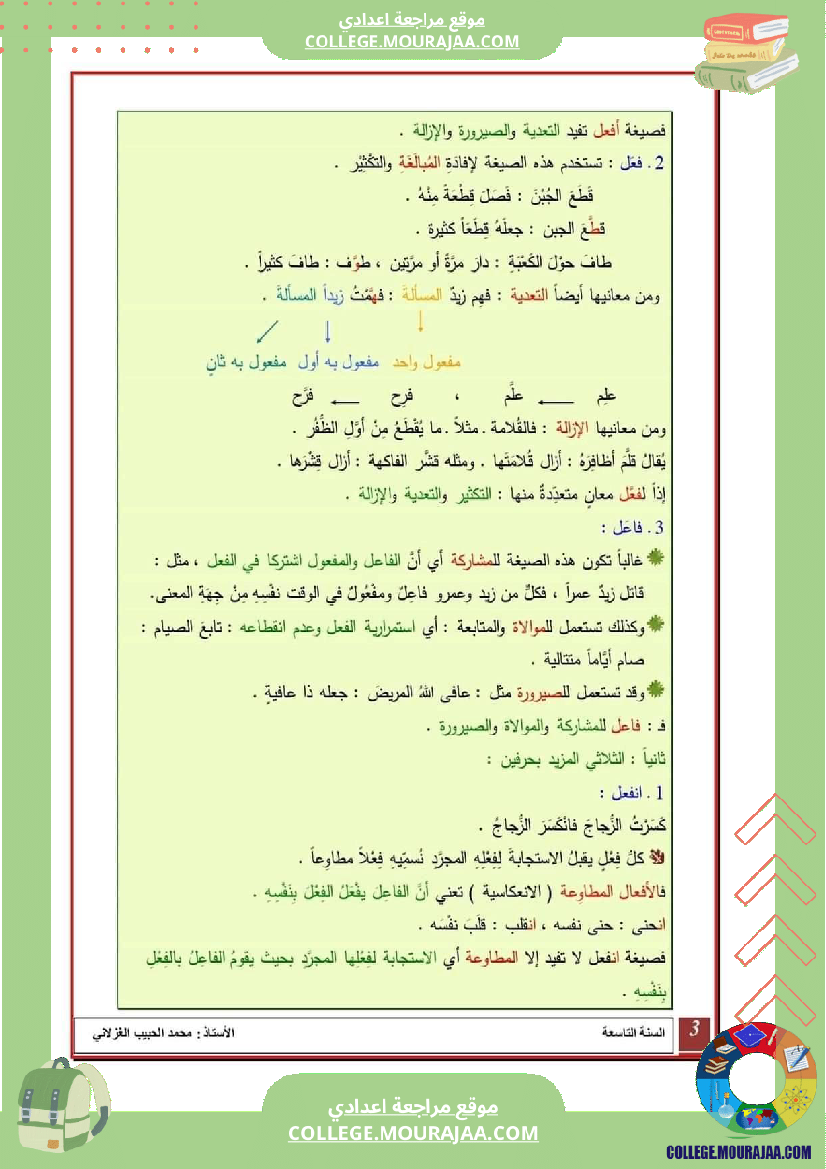 موقع مراجعة اعدادي
COLLEGE.MOURAJAA.COM
فصيغة أفعل تفيد التعدية والصيرورة والإزالة .
2 . فعّل : تستخدم هذه الصيغة لإفادَةِ المُبالَغَةِ والتكْثِيْر .
قَطَعَ الجُبْنَ : فَصَلَ قِطْعَةً مِنْهُ .
قطَّعَ الجبن : جعلَهُ قِطَعَاً كثيرة .
طافَ حوْلَ الكَعْبَةِ : دارَ مرَّةً أو مرَّتين ، طوَّف : طافَ كثيراً .
ومن معانيها أيضاً التعدية : فهِم زيدٌ المسألةَ : فهَّمْتُ زيداً المسألةَ .
مفعول واحد مفعول به أول مفعول به ثانٍ
علِم علَّم ، فرِح فرَّح
ومن معانيها الإزالة : فالقُلامة . مثلاً . ما يُقْطَعُ مِنْ أوَّلِ الظُّفُر .
يُقالُ قلَّمَ أظافِرَهُ : أزال قُلامَتَها . ومثله قشَّر الفاكهة : أزال قِشْرَها .
إذاً لفعَّل معانٍ متعدِّدةٌ منها : التكثير والتعدية والإزالة .
3 . فاعَل :
غالباً تكون هذه الصيغة للمشاركة أي أنَّ الفاعل والمفعول اشتركا في الفعل ، مثل :
قاتل زيدٌ عمراً ، فكلٌّ من زيد وعمرو فاعِلٌ ومفْعُولٌ في الوقت نفْسِهِ مِنْ جِهَةِ المعنى.
وكذلك تستعمل للموالاة والمتابعة : أي استمرارية الفعل وعدم انقطاعه : تابعَ الصيام :
صام أيَّاماً متتالية .
وقد تستعمل للصيرورة مثل : عافى اللهُ المريضَ : جعله ذا عافيةٍ .
فـ : فاعل للمشاركة والموالاة والصيرورة .
ثانياً : الثلاثي المزيد بحرفين :
1 . انفعل :
كَسَرْتُ الزُّجاجَ فانْكَسَرَ الزُّجاجُ .
كلُّ فِعْلٍ يقبلُ الاستجابةَ لِفِعْلِهِ المجرَّدِ نُسمِّيهِ فِعْلاً مطاوِعاً .
فالأفعال المطاوِعة ( الانعكاسية ) تعني أنَّ الفاعِلَ يفْعَلُ الفِعْلَ بِنَفْسِهِ .
انحنى : حنى نفسه ، انقلب : قلَبَ نفْسَه .
فصيغة انفعل لا تفيد إلا المطاوعة أي الاستجابة لفِعْلِها المجرَّدِ بحيث يقومُ الفاعِلُ بالفِعْلِ
بِنَفْسِهِ .
3 السنة التاسعة الأستاذ : محمد الحبيب الغزلاني
موقع مراجعة اعدادي
COLLEGE.MOURAJAA.COM
COLLEGE.MOURAJAA.COM